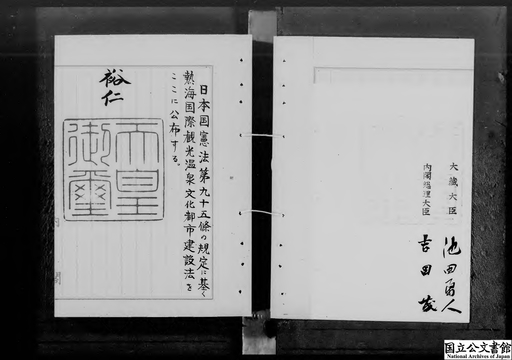 日本国憲法第九十五條の規定に基く
熱海国際観光温泉文化都市建設法を
ここに公布する。
裕仁
天皇
御璽
大藏大臣
池田勇人
内閣総理大臣
吉田茂
国立公文書館
National Archives of Japan